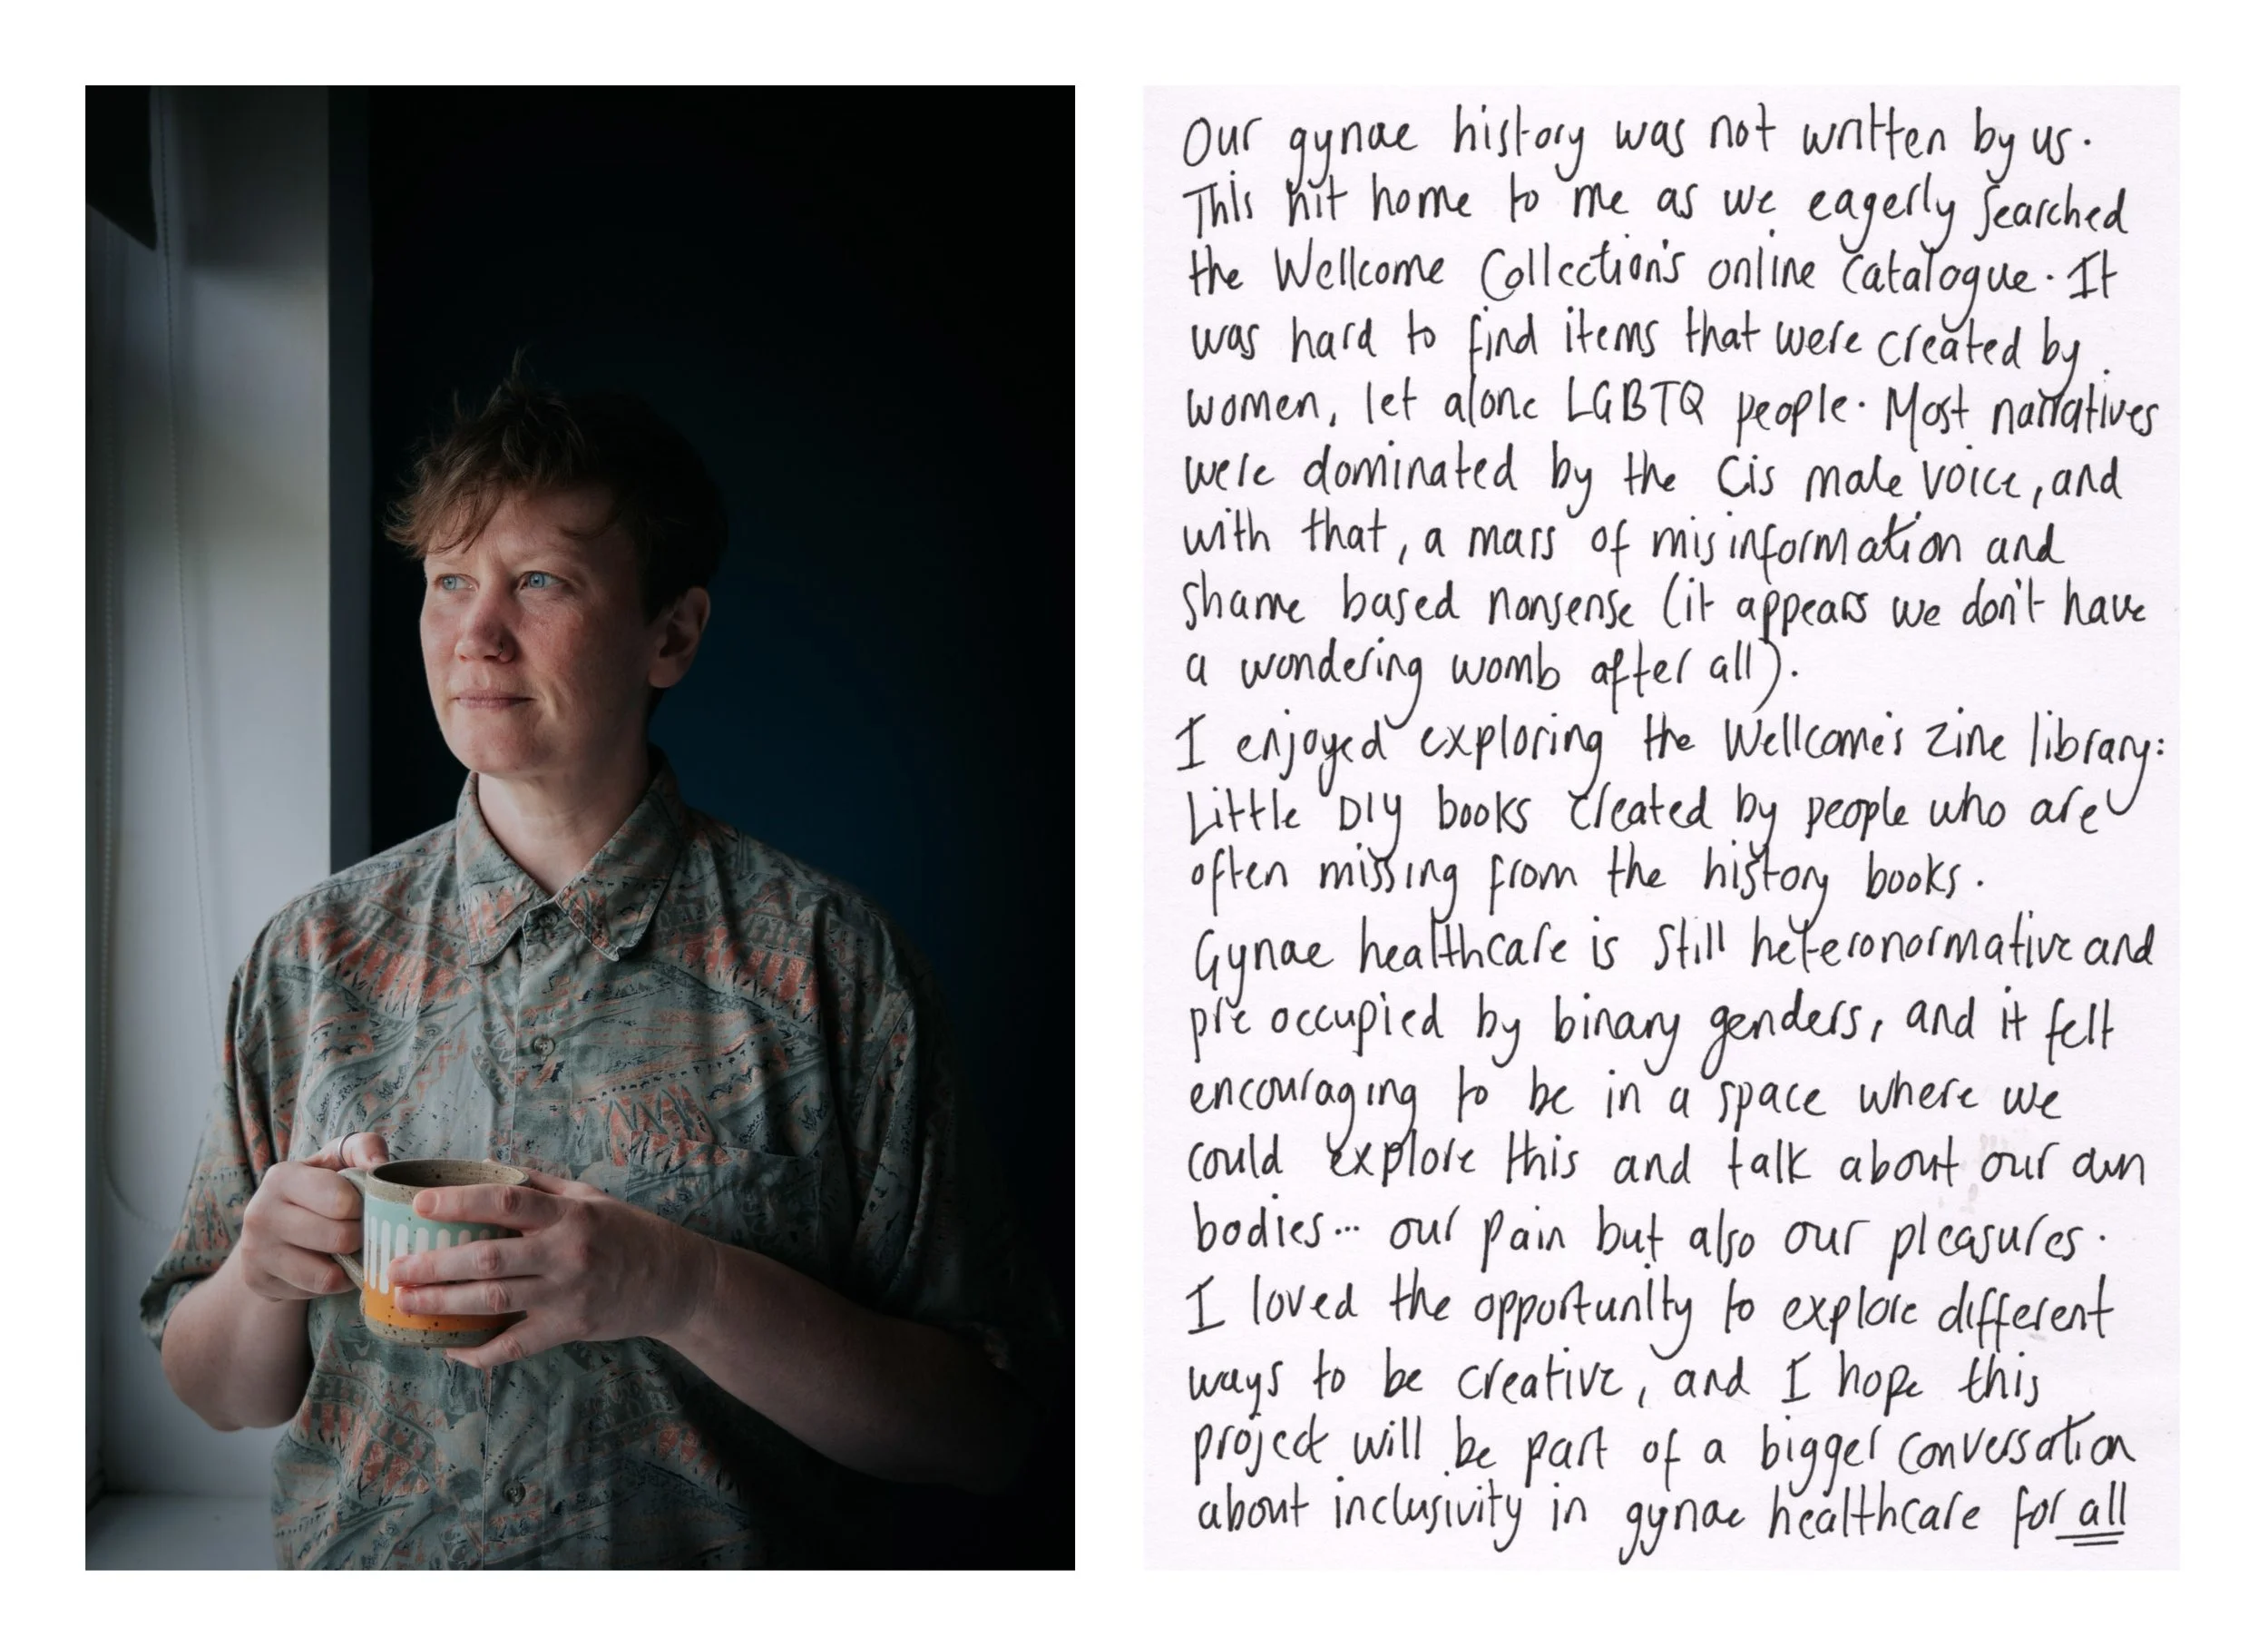 Our gynae history was not written by us.
This hit home to me as we eagerly searched
the Wellcome Collection's online catalogue. It
was hard to find items that were created by
women, let alone LGBTQ people. Most narratives
were dominated by the cis male voice, and
with that, a mass of misinformation and
shame based nonsense (it appears we don't have
a wondering womb after all).
I enjoyed exploring the Wellcome's zine library:
Little DIY books created by people who are
often missing from the history books.
Gynae healthcare is still heteronormative and
pre occupied by binary genders, and it felt
encouraging to be in a space where we
could explore this and talk about our own
bodies... our pain but also our pleasures.
I loved the opportunity to explore different
ways to be creative, and I hope this
project will be part of a bigger conversation
about inclusivity in gynae healthcare for all